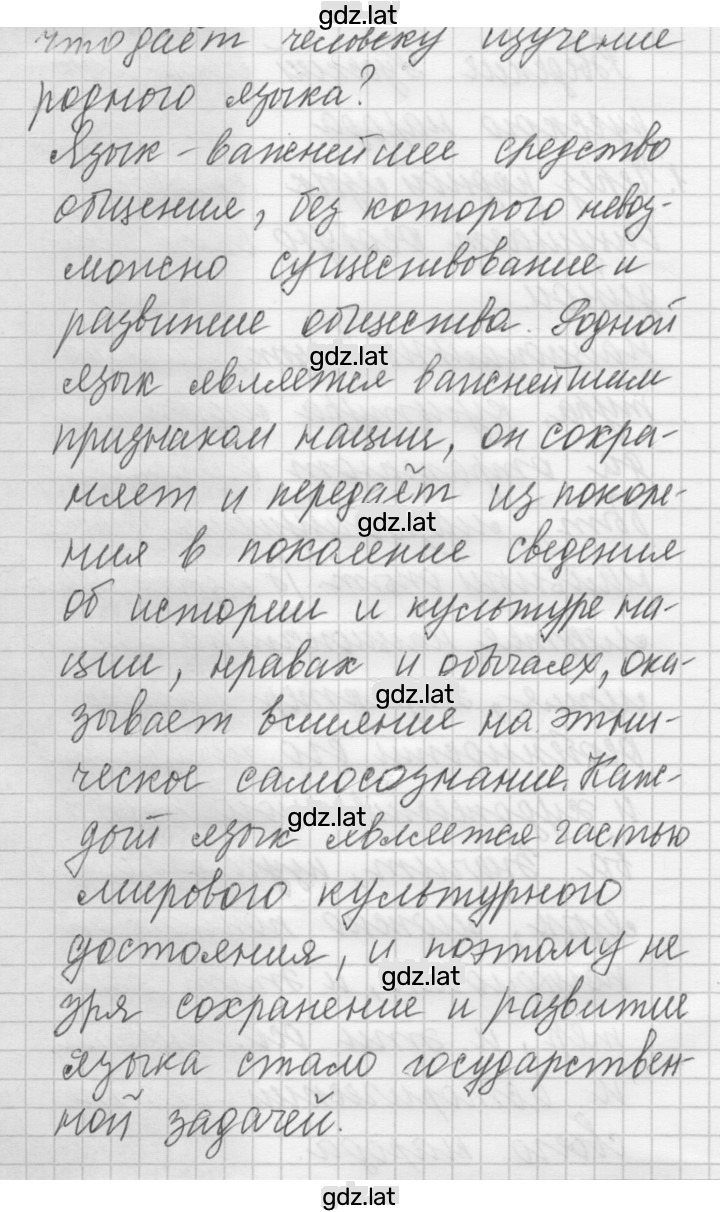 gdz.lat
что даёт человеку изучение
родного языка?
Язык - важнейшее средство
общения, без которого невоз-
можно существование и
развитие общества. Родной
gdz.lat
язык является важнейшим
признаком нации, он сохра-
няет и передаёт из поколе-
gdz.lat
ния в поколение сведения
об истории и культуре на-
ции, нравах и обычаях, ока-
gdz.lat
зывает влияние на этни-
ческое самосознание. Каж-
gdz.lat
дый язык является частью
мирового культурного
достояния, и поэтому не
gdz.lat
зря сохранение и развитие
языка стало государствен-
ной задачей.
gdz.lat